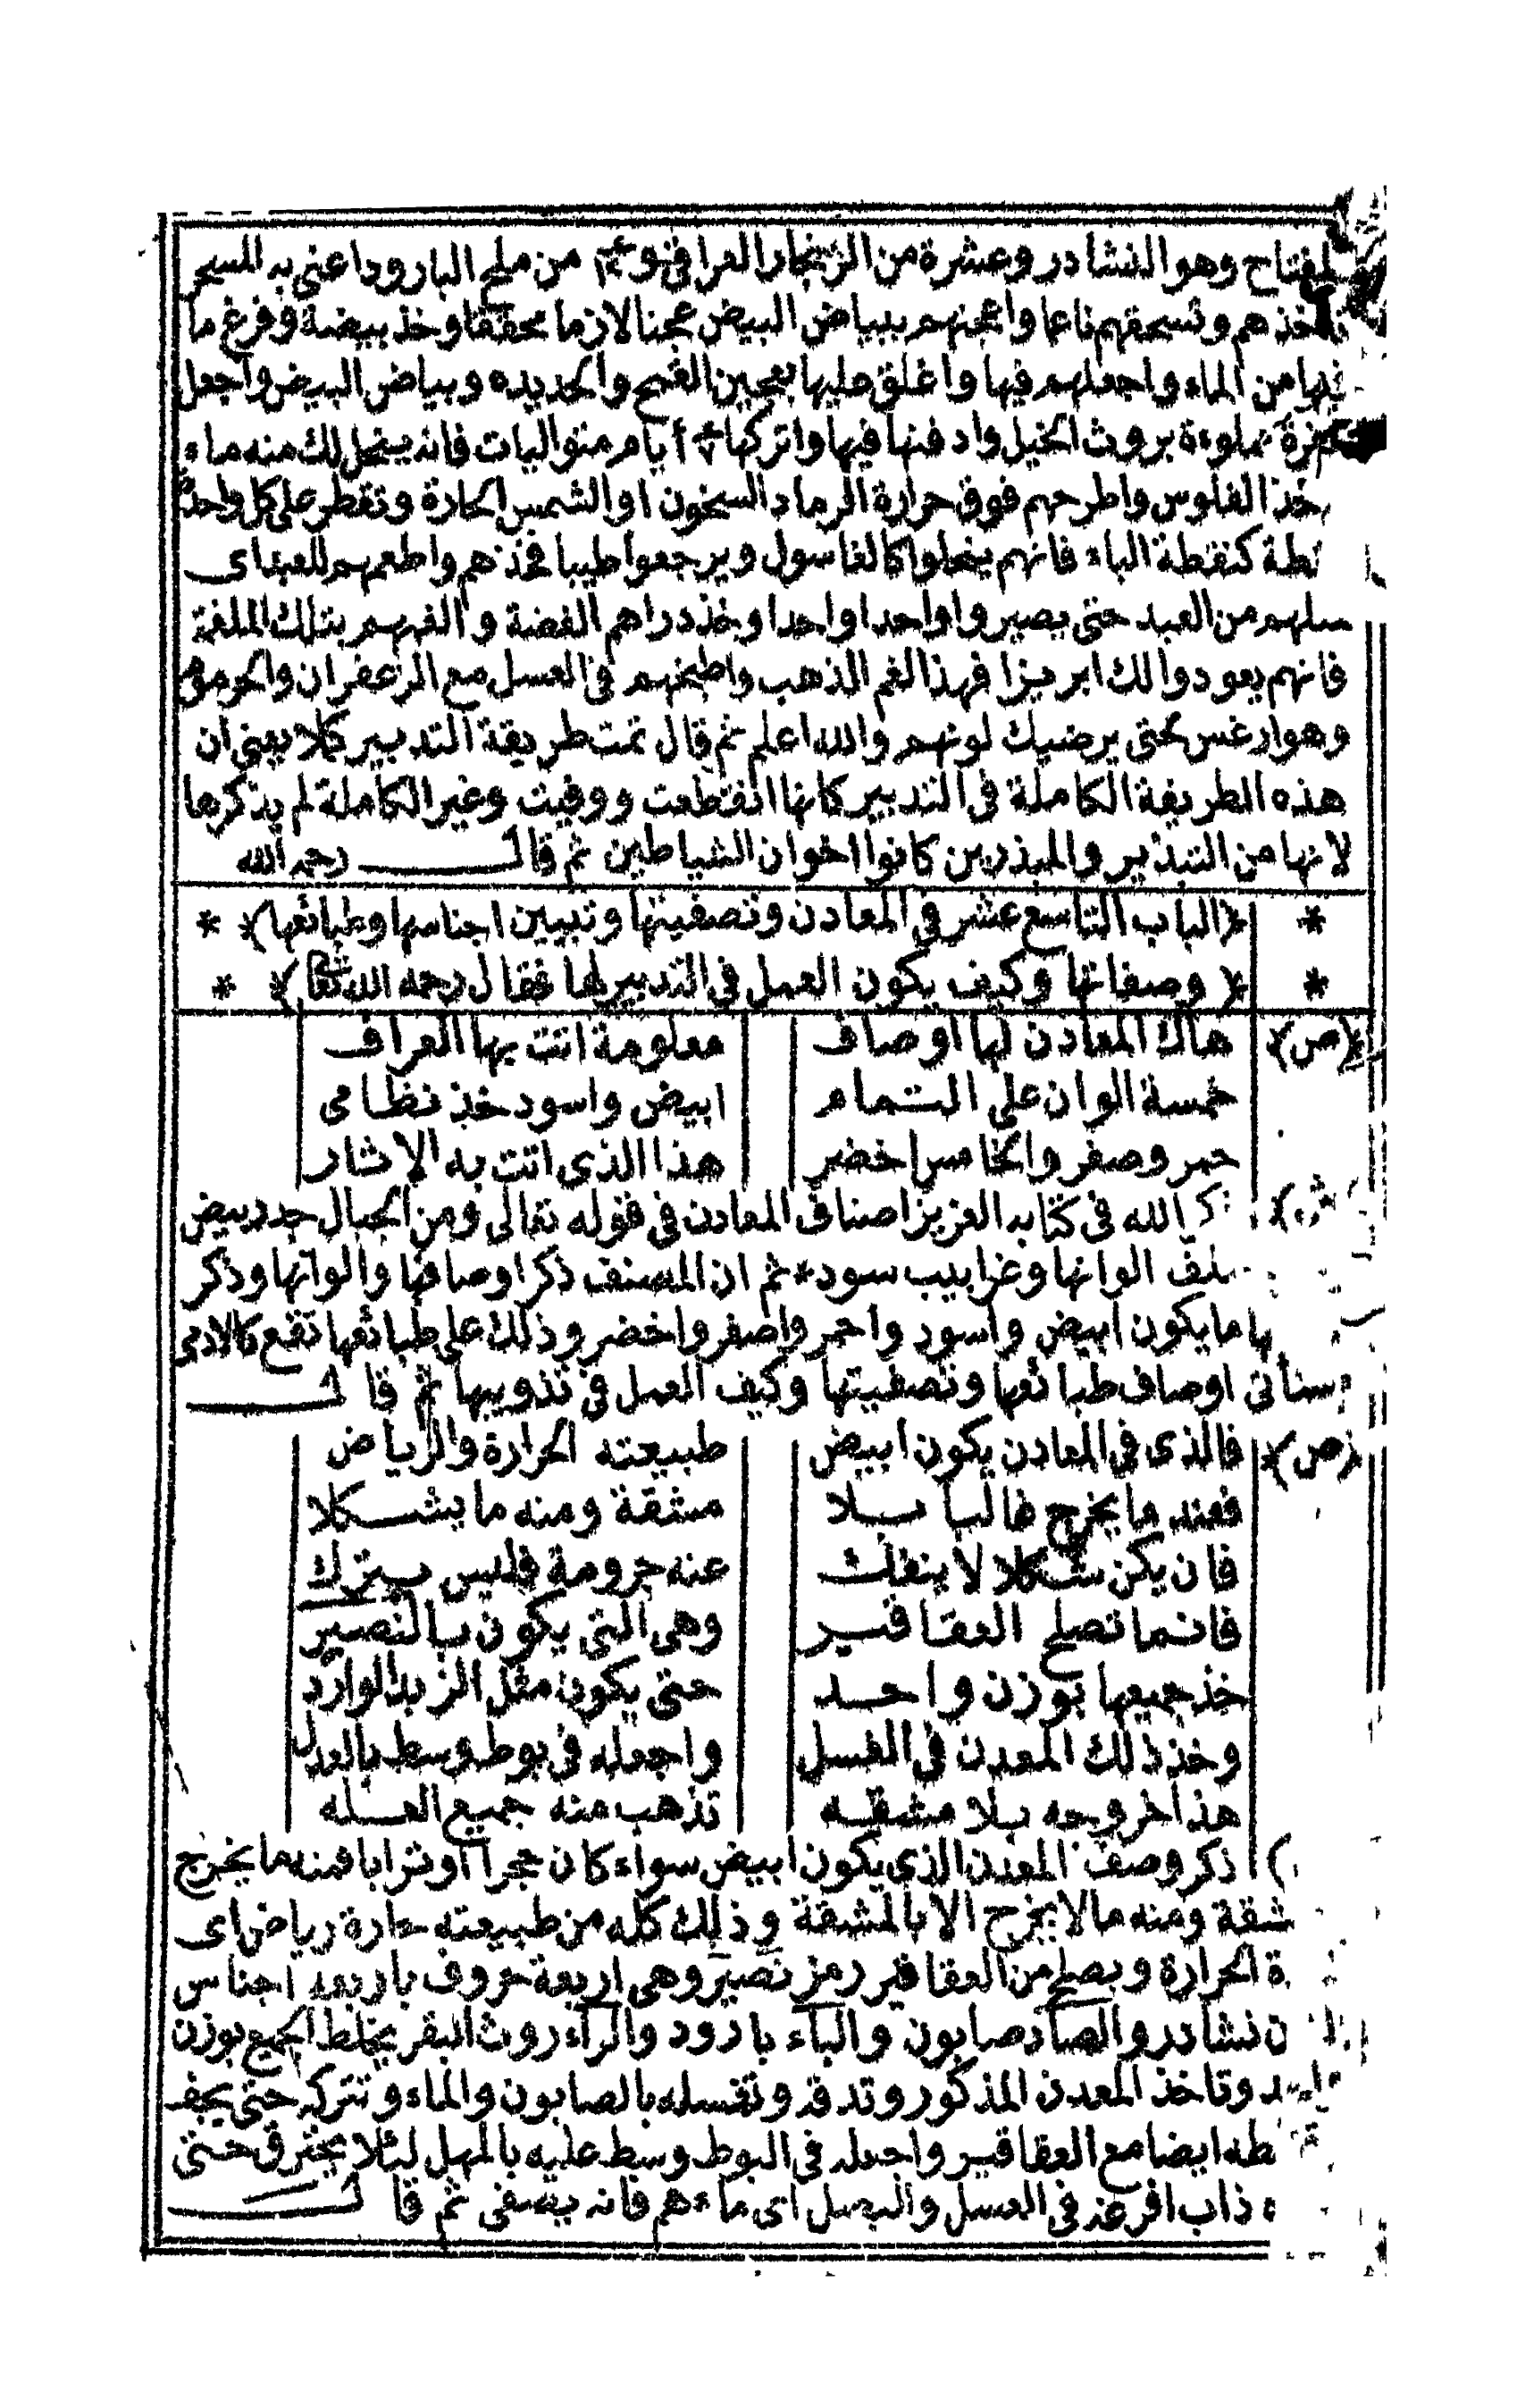 لمفتاح وهو النشادر وعشرة من الزنجار العراقى و من ملح البارود اعنى به المسحر
خذهم وتسحقهم ناعما واعجنهم ببياض البيض عجنا لازما محققا وخذ بيضة وفرغ ما
فيها من الماء واجعلهم فيها واغلق عليها بعجين القمح والحديده وبياض البيض واجعل
حفرة مملوءة بروث الخيل وادفنها فيها واتركها أيام متواليات فانه ينحل لك منه ماء
خذ الفلوس واطرحهم فوق حرارة الرماد السخون او الشمس الحارة وتقطر على كل واحدة
نقطة كنقطة الباء فانهم ينحلوا كالغاسول ويرجعوا طيبا فخذهم واطعمهم للعبد اى
سلهم من العبد حتى يصيروا واحدا واحدا وخذ دراهم الفضة والفهم بتلك الملغمة
فانهم يعودوا لك ابريزا فهذا لغم الذهب واطبخهم فى العسل مع الزعفران والحرمق
وهو ارغس حتى يرضيك لونهم والله اعلم ثم قال تمت طريقة التدبير كملا يعنى ان
هذه الطريقة الكاملة فى التدبير كانها انقطعت ووفيت وغير الكاملة لم يذكرها
لانها من التبذير والمبذرين كانوا اخوان الشياطين ثم قال رحمه الله
* ﴿الباب التاسع عشر فى المعادن وتصفيتها وتبيين اجناسها وطبائعها﴾ *
* ﴿وصفاتها وكيف يكون العمل فى التدبير لها فقال رحمه الله تعالى﴾ *
﴿ص﴾ هاك المعادن لها اوصاف معلومة اتت بها العراف
خمسة الوان على التمام ابيض واسود خذ نظامى
حمر وصفر والخامس اخضر هذا الذى اتت به الاثار
﴿ش﴾ ذكر الله فى كتابه العزيز اصناف المعادن فى قوله تعالى ومن الجبال جدد بيض
مختلف الوانها وغرابيب سود * ثم ان المصنف ذكر اوصافها والوانها وذكر
ما يكون ابيض واسود واحمر واصفر واخضر وذلك على طبائعها تقع كالادمى
وسنأتى اوصاف طبائعها وتصفيتها وكيف العمل فى تذويبها ثم قال
﴿ص﴾ فالذى فى المعادن يكون ابيض طبيعته الحرارة والرياض
فمنه ما يخرج غالبا بلا مشقة ومنه ما يشكلا
فان يكن شكلا لا ينفك عنه جرومة فليس يترك
فانما تصلح العقاقير وهى التى يكون بالنصير
خذ جميعها بوزن واحد حتى يكون مثل الزبد الوارد
وخذ ذلك المعدن فى الغسل واجعله فى بوط وسط بالعدل
هذا خروجه بلا مشقه تذهب منه جميع العله
ذكر وصف المعدن الذى يكون ابيض سواء كان حجرا او ترابا فمنه ما يخرج
مشقة ومنه ما لا يخرج الا بالمشقة وذلك كله من طبيعته حارة رياض اى
ة الحرارة ويصلح من العقاقير رمز نصير وهى اربعة حروف باربعه اجناس
ن نشادر والصاد صابون والباء بارود والراء روث البقر يخلط الجميع بوزن
واحد وتاخذ المعدن المذكور وتدقه وتغسله بالصابون والماء وتتركه حتى يجف
طه ايضا مع العقاقير واجعله فى البوط وسط عليه بالمهل لئلا يحترق حتى
ذاب افرغه فى العسل والبصل اى ماءهم فانه يصفى ثم قال